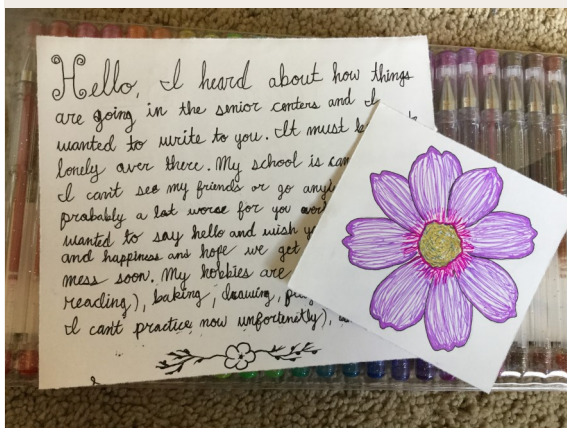 Hello, I heard about how things
are going in the senior centers and I
wanted to write to you. It must
lonely over there. My school is
I can't see my friends or go
probably a lot worse for you
wanted to say hello and wish
and happiness and hope we get
mess soon. My hobbies are
reading), baking, drawing,
I cant practice now unfortenetly),